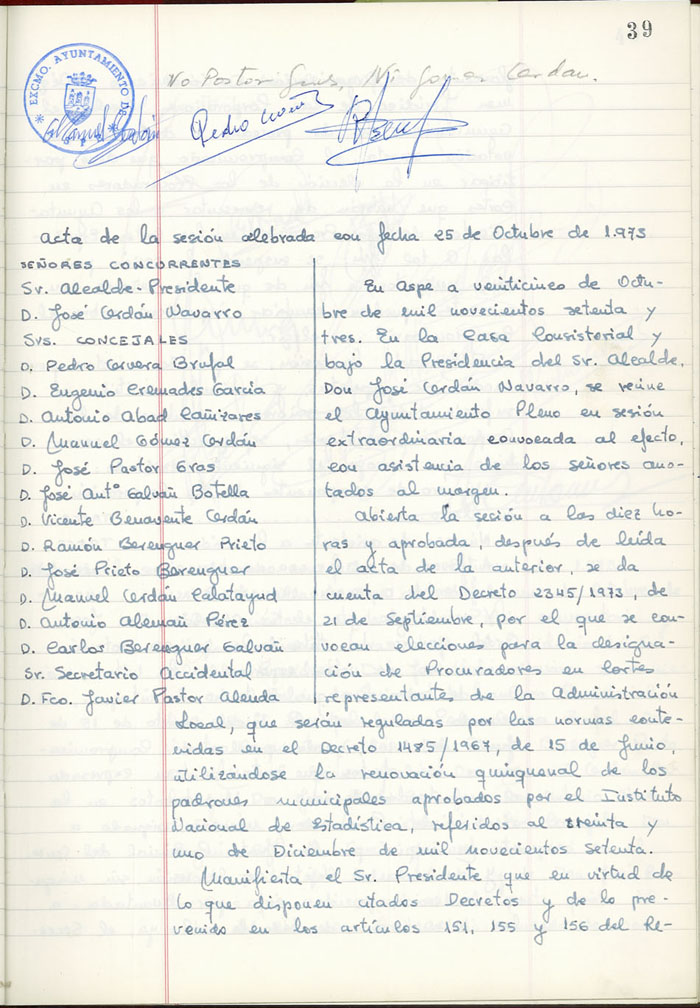 39
EXCMO. AYUNTAMIENTO DE
No Pastor Gras, Ni Gomez Cerdan.
Pedro
Acta de la sesión celebrada con fecha 25 de Octubre de 1.973
SEÑORES CONCURRENTES
Sr. Alcalde-Presidente
D. José Cerdán Navarro
Srs. CONCEJALES
D. Pedro Cervera Brufal
D. Eugenio Cremades Garcia
D. Antonio Abad Cañizares
D. Manuel Gómez Cerdán
D. José Pastor Gras
D. José Antº Galvañ Botella
D. Vicente Benavente Cerdán
D. Ramón Berenguer Prieto
D. José Prieto Berenguer
D. Manuel Cerdán Calatayud
D. Antonio Alemañ Pérez
D. Carlos Berenguer Galvañ
Sr. Secretario Accidental
D. Fco. Javier Pastor Alenda
En Aspe a veinticinco de Octu-
bre de mil novecientos setenta y
tres. En la Casa Consistorial y
bajo la Presidencia del Sr. Alcalde,
Don José Cerdán Navarro, se reúne
el Ayuntamiento Pleno en sesión
extraordinaria convocada al efecto,
con asistencia de los señores ano-
tados al margen.
Abierta la sesión a las diez ho-
ras y aprobada, después de leída
el acta de la anterior, se da
cuenta del Decreto 2345/1973, de
21 de Septiembre, por el que se con-
vocan elecciones para la designa-
ción de Procuradores en Cortes
representantes de la Administración
Local, que serán reguladas por las normas conte-
nidas en el Decreto 1485/1967, de 15 de Junio,
utilizándose la renovación quinquenal de los
padrones municipales aprobados por el Instituto
Nacional de Estadística, referidos al treinta y
uno de Diciembre de mil novecientos setenta.
Manifiesta el Sr. Presidente que en virtud de
lo que disponen citados Decretos y de lo pre-
venido en los artículos 151, 155 y 156 del Re-